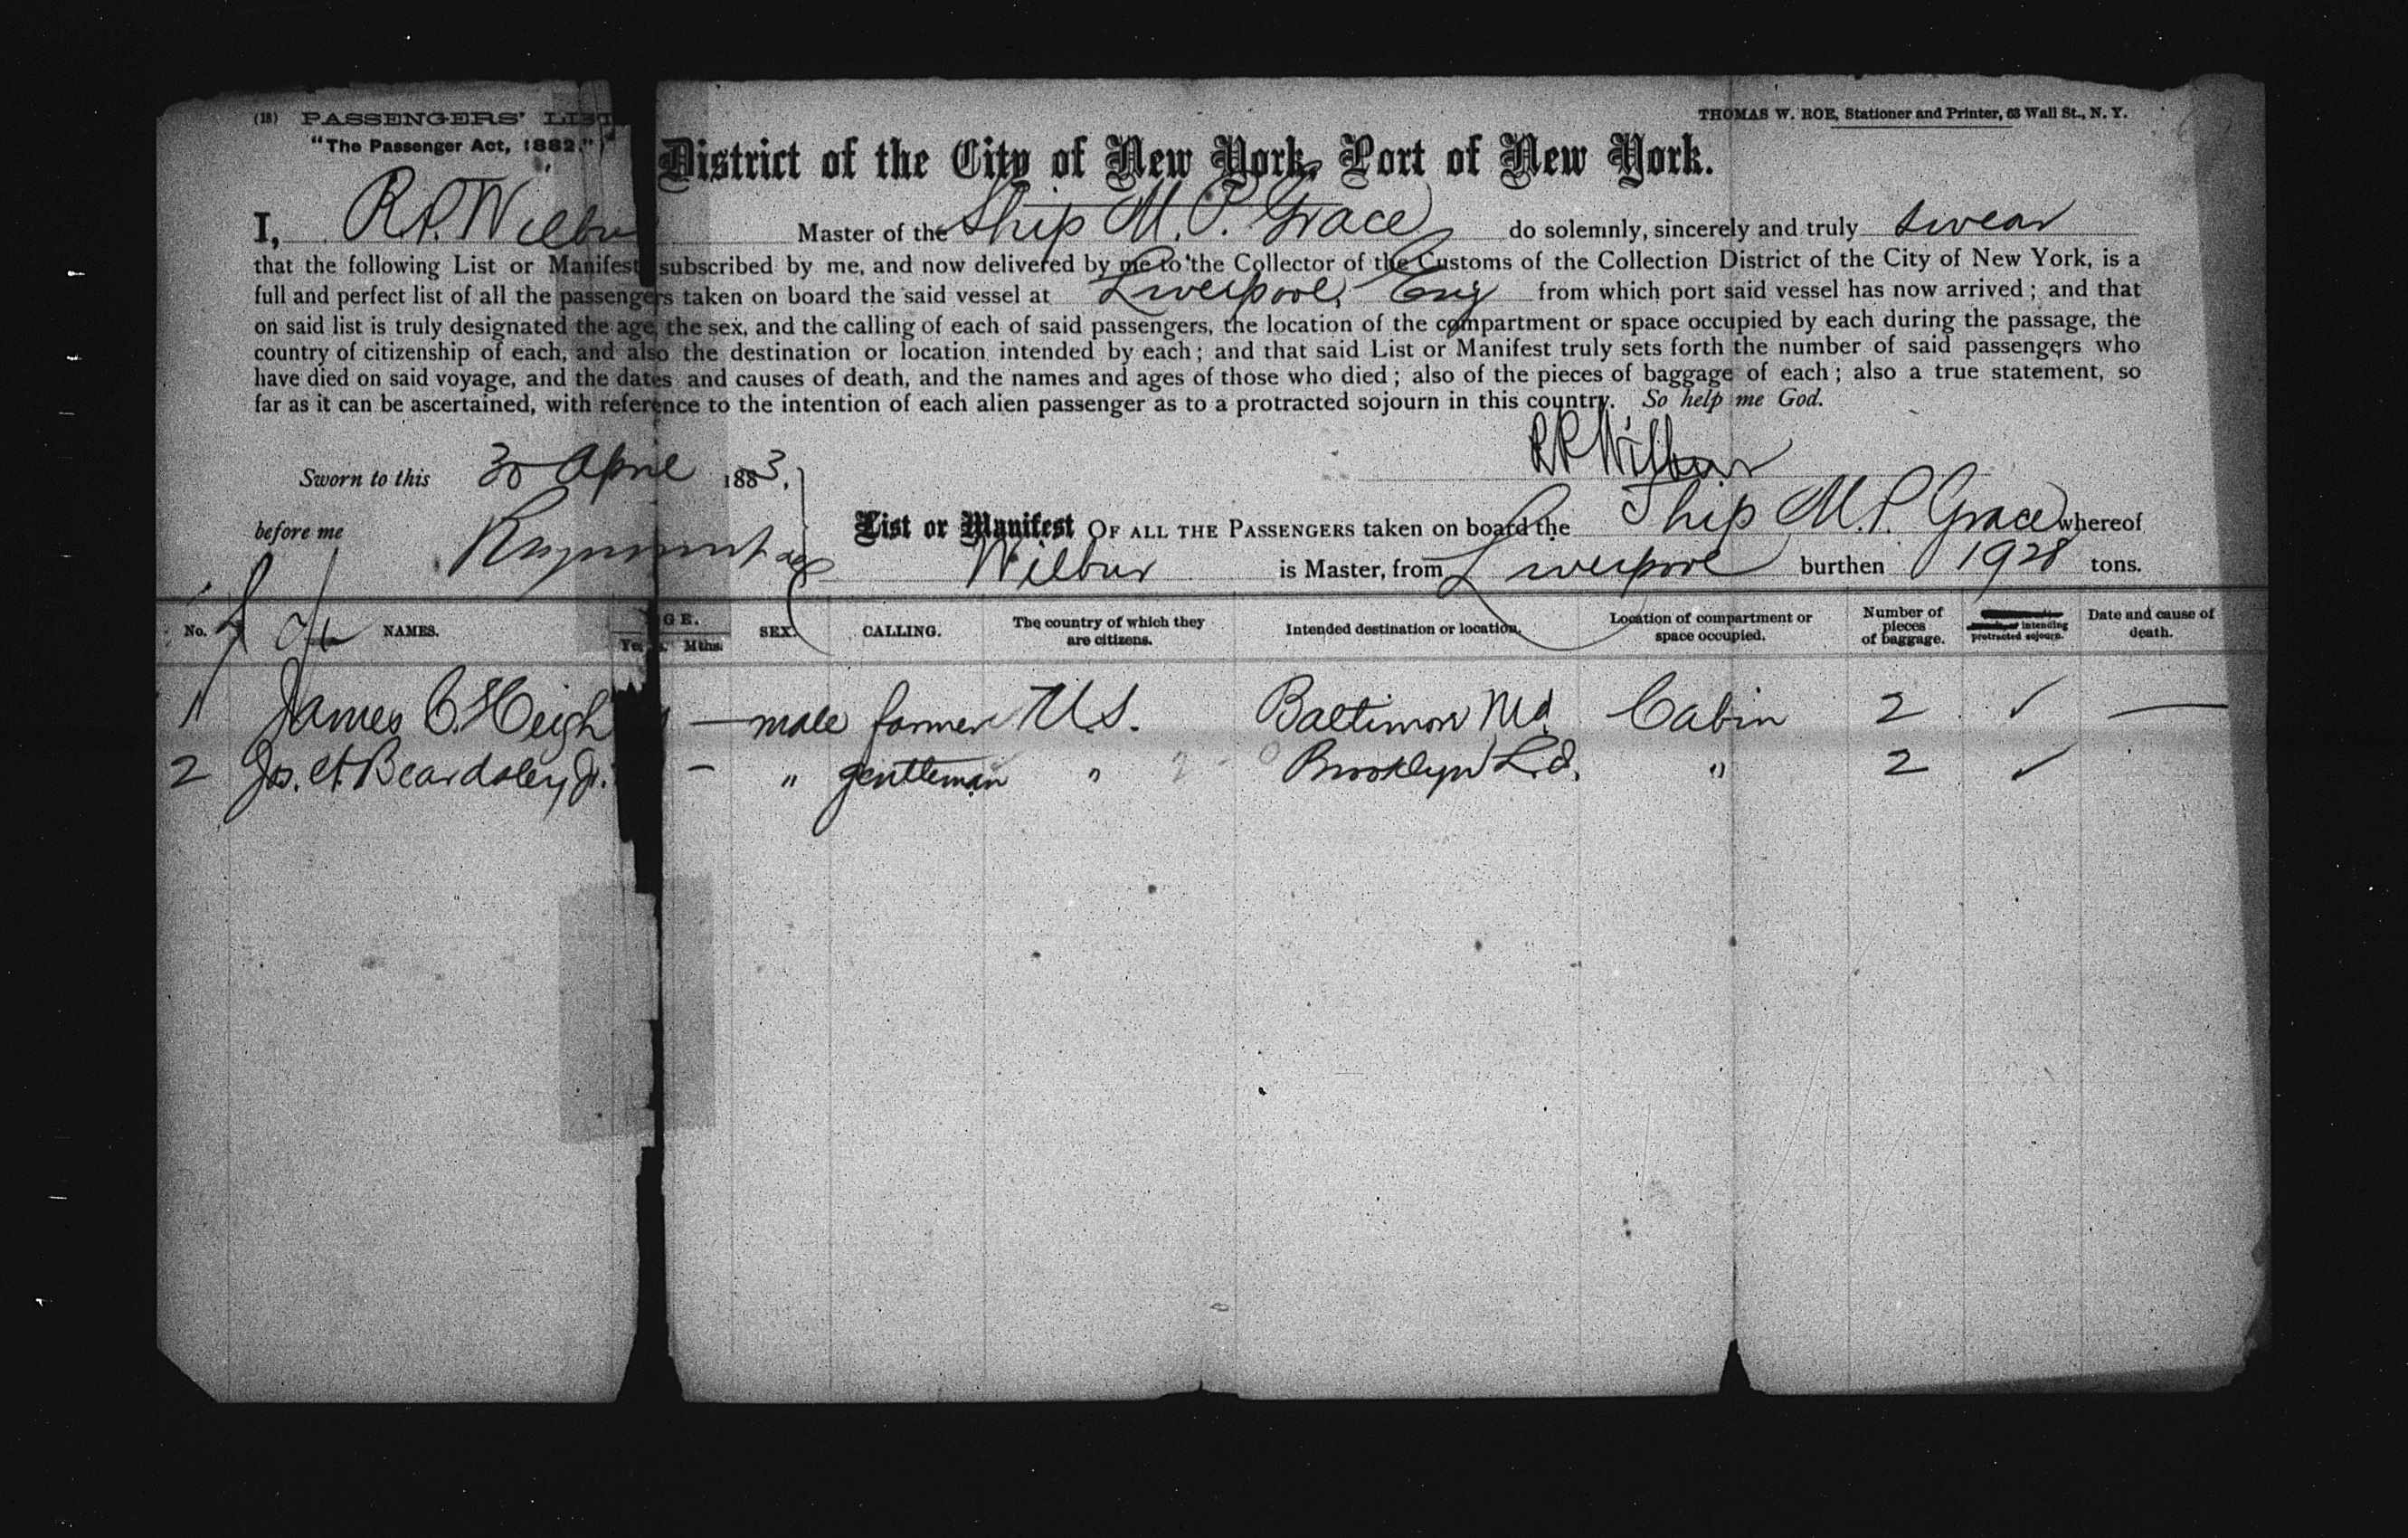 (18) PASSENGERS' LIST
"The Passenger Act, 1882."
THOMAS W. ROE, Stationer and Printer, 63 Wall St., N. Y.
District of the City of New York, Port of New York.
I, R. P. Wilbur Master of the Ship M. P. Grace do solemnly, sincerely and truly swear
that the following List or Manifest subscribed by me, and now delivered by me to the Collector of the Customs of the Collection District of the City of New York, is a
full and perfect list of all the passengers taken on board the said vessel at Liverpool, Eng from which port said vessel has now arrived; and that
on said list is truly designated the age, the sex, and the calling of each of said passengers, the location of the compartment or space occupied by each during the passage, the
country of citizenship of each, and also the destination or location intended by each; and that said List or Manifest truly sets forth the number of said passengers who
have died on said voyage, and the dates and causes of death, and the names and ages of those who died; also of the pieces of baggage of each; also a true statement, so
far as it can be ascertained, with reference to the intention of each alien passenger as to a protracted sojourn in this country. So help me God.
R P Wilbur
Sworn to this 30 April 1883,
before me
List or Manifest OF ALL THE PASSENGERS taken on board the Ship M. P. Grace whereof
Wilbur is Master, from Liverpool burthen 1928 tons.
No. NAMES. AGE. Yrs. Mths. SEX. CALLING. The country of which they are citizens. Intended destination or location. Location of compartment or space occupied. Number of pieces of baggage. intending protracted sojourn. Date and cause of death.
1 James C. Heigh — male farmer U.S. Baltimore Md. Cabin 2 ✓ —
2 Jos. A. Beardsley Jr. - " gentleman " Brooklyn L.d. " 2 ✓